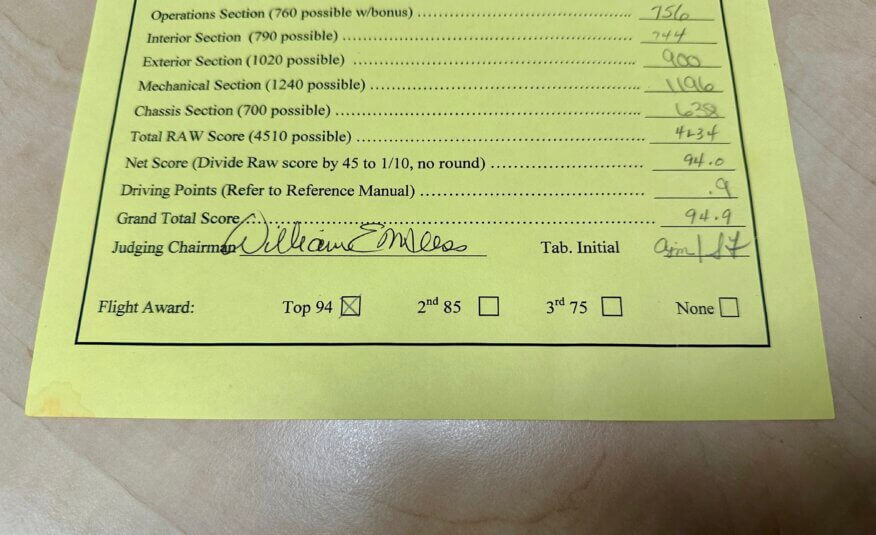 Operations Section (760 possible w/bonus) ........................................ 756
Interior Section (790 possible) ........................................ 744
Exterior Section (1020 possible) ........................................ 900
Mechanical Section (1240 possible) ........................................ 1196
Chassis Section (700 possible) ........................................ 638
Total RAW Score (4510 possible) ........................................ 4234
Net Score (Divide Raw score by 45 to 1/10, no round) ........................................ 94.0
Driving Points (Refer to Reference Manual) ........................................ .9
Grand Total Score ........................................ 94.9
Judging Chairman William E Tab. Initial
Flight Award: Top 94 ☒ 2nd 85 ☐ 3rd 75 ☐ None ☐